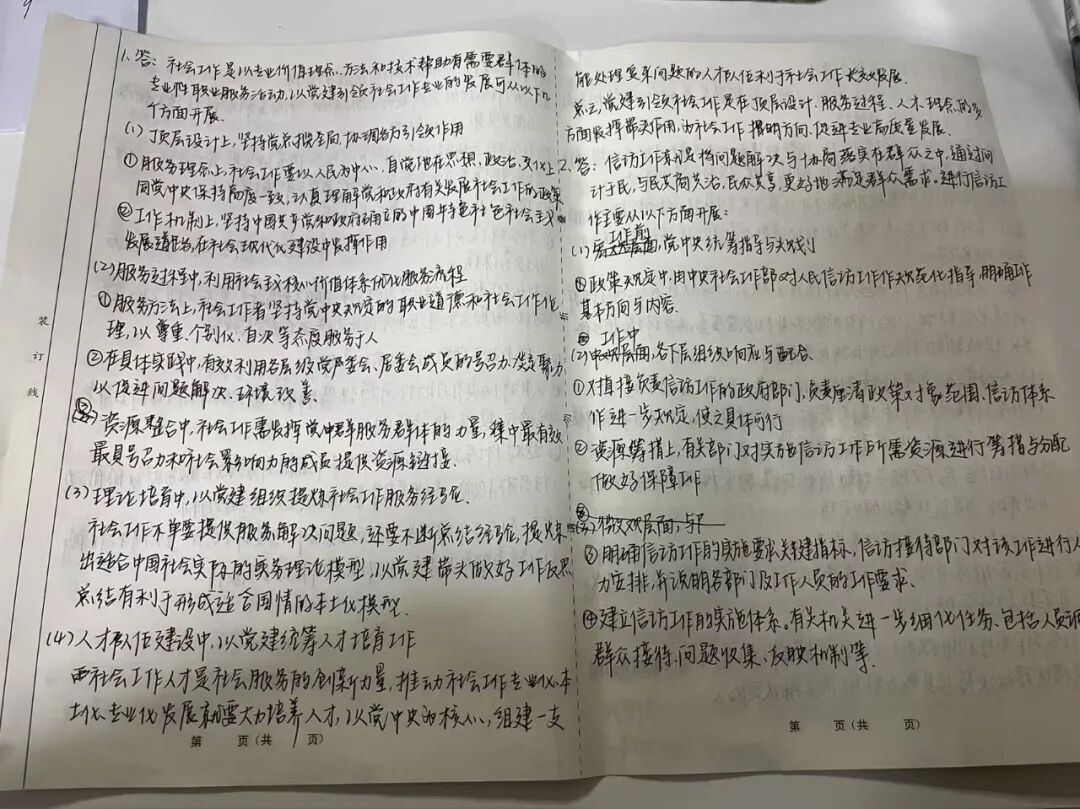 1. 答：社会工作是以专业价值理念、方法和技术帮助有需要群体的
专业性职业服务活动,以党建引领社会工作专业的发展可从以下几
个方面开展.
(1) 顶层设计上,坚持党总揽全局,协调各方引领作用
①服务理念上,社会工作要以人民为中心,自觉地在思想、政治、文化上
同党中央保持高度一致,认真理解党和政府有关发展社会工作的政策
②工作机制上,坚持中国共产党和政府确立的中国特色社会主义
发展道路,在社会现代化建设中发挥作用
(2)服务过程中,利用社会主义核心价值体系优化服务流程
①服务方法上,社会工作者坚持党中央规定的职业道德和社会工作伦
理,以尊重、个别化、自决等态度服务于人
②在具体实践中,有效利用各层级党严委会、居委会成员的号召力、凝聚力
以促进问题解决、环境改善.
③资源整合中,社会工作需发挥党中群服务群体的力量,集中最有效
最具号召力和社会影响力的成员提供资源链接.
(3) 理论培育中,以党建组织提炼社会工作服务经验.
社会工作不单要提供服务解决问题,还要不断总结经验,提炼
出适合中国社会实际的实务理论模型,以党建带头做好工作反思
总结有利于形成适合国情的本土化模型.
(4)人才队伍建设中,以党建统筹人才培育工作
社会工作人才是社会服务的创新力量,推动社会工作专业化、本
土化、专业化发展就要大力培养人才,以党中央为核心,组建一支
第 页(共 页)
能处理复杂问题的人才队伍利于社会工作长效发展.
总之,党建引领社会工作是在顶层设计、服务过程、人才、理念的多
方面发挥带头作用,为社会工作指明方向、促进专业高质量发展.
2. 答：信访工作意识是将问题解决与协商落实在群众之中,通过问
计于民,与民共商共治,民众共享,更好地满足群众需求.进行信访工
作主要从以下方面开展：
(1)工作前,党中央统筹指导与规划
①政策规定中,由中央社会工作部对人民信访工作作规范化指导,明确工作
基本方向与内容.
工作中
(2)层面,各下层组织响应与配合.
①对直接负责信访工作的政府部门,负责厘清政策对象、范围、信访体系
作进一步规定,使之具体可行
②资源筹措上,有关部门对实施信访工作所需资源进行筹措与分配
做好保障工作
③明确信访工作的实施要求关键指标,信访接待部门对该工作进行人
力安排,并说明各部门及工作人员的工作要求.
④建立信访工作的实施体系.有关机关进一步细化任务、包括人员调
群众接待、问题收集、反映机制等.
第 页(共 页)
装
订
线